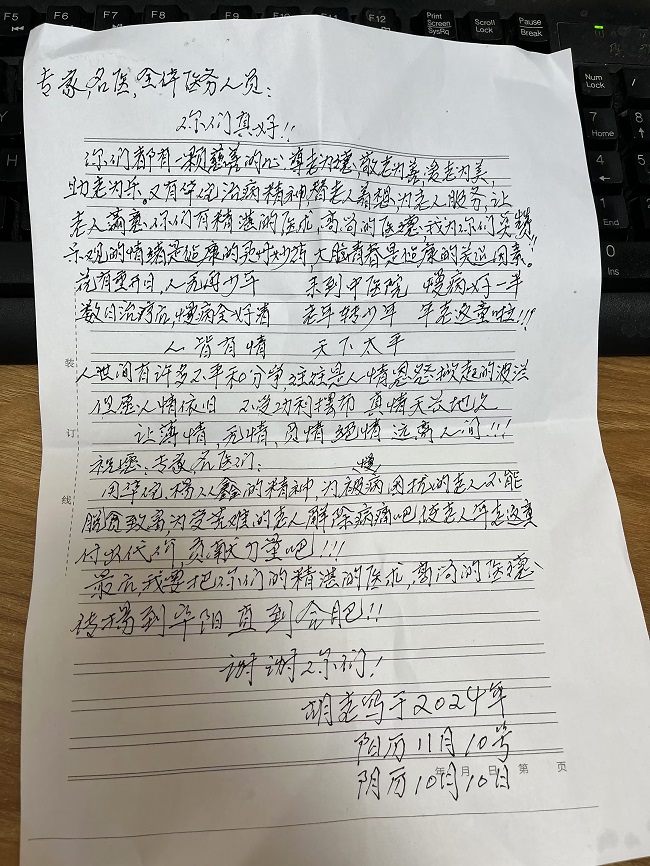 F5 F6 F7 F8 F9 F10 F11 F12 Print Screen SysRq Scroll Lock Pause Break
Num Lock
7 Home
4
1
0 Ins
专家,名医,全体医务人员:
你们真好!!
你们都有一颗慈善的心,尊老为德,敬老为善,爱老为美,
助老为乐。又有华佗治病精神,替老人着想,为老人服务,让
老人满意。你们有精湛的医术,高尚的医德,我为你们点赞!!
乐观的情绪是健康的灵性妙药,大脑青春是健康的关键因素。
花有重开日,人无再少年 来到中医院 慢病好一半
数日治疗后,慢病全好消 老年转少年 年老返童啦!!!
人皆有情 天下太平
人世间有许多不平和纷争往往是人情恩怨掀起的波浪
但愿人情依旧 不受功利摆布 真情天长地久
让薄情,无情,绝情远离人间!!!
祝愿:专家名医们:
用华佗,杨人的精神,为被慢病困扰的老人不能
脱贫致富为受苦难的老人解除病痛吧,使老人年老返童
付出代价,贡献力量吧!!!
最后,我要把你们的精湛的医术,高尚的医德、
传扬到阜阳直到合肥!!
谢谢你们!
胡老写于2024年
阳历11月10号
阴历10月10日
年 月 日 第 页
装
订
线